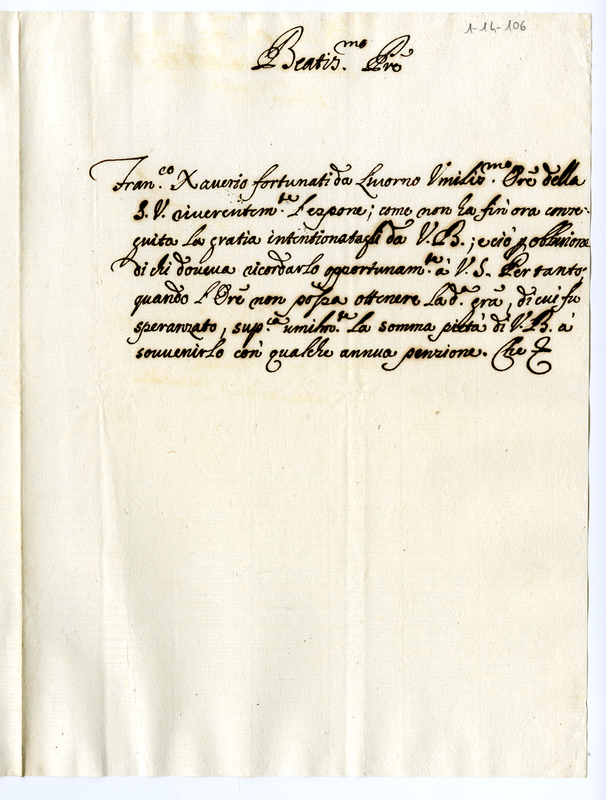 1-14-106
Beatis.mo Pre
Fran.co Xaverio fortunati da Livorno Umilis.mo Ore della
S. V. riverentem.te l'espone; come non ha fin'ora conse-
guita la gratia intentionatagli da V. B.; e ciò p oblivione
di chi doveva ricordarlo opportunam.te à V. S. Per tanto
quando l'Ore non possa ottenere la d.a gra, di cui fu
speranzato, sup.ca umilm.te la somma pietà di V. B. à
souvenirlo con qualche annua penzione. Che &